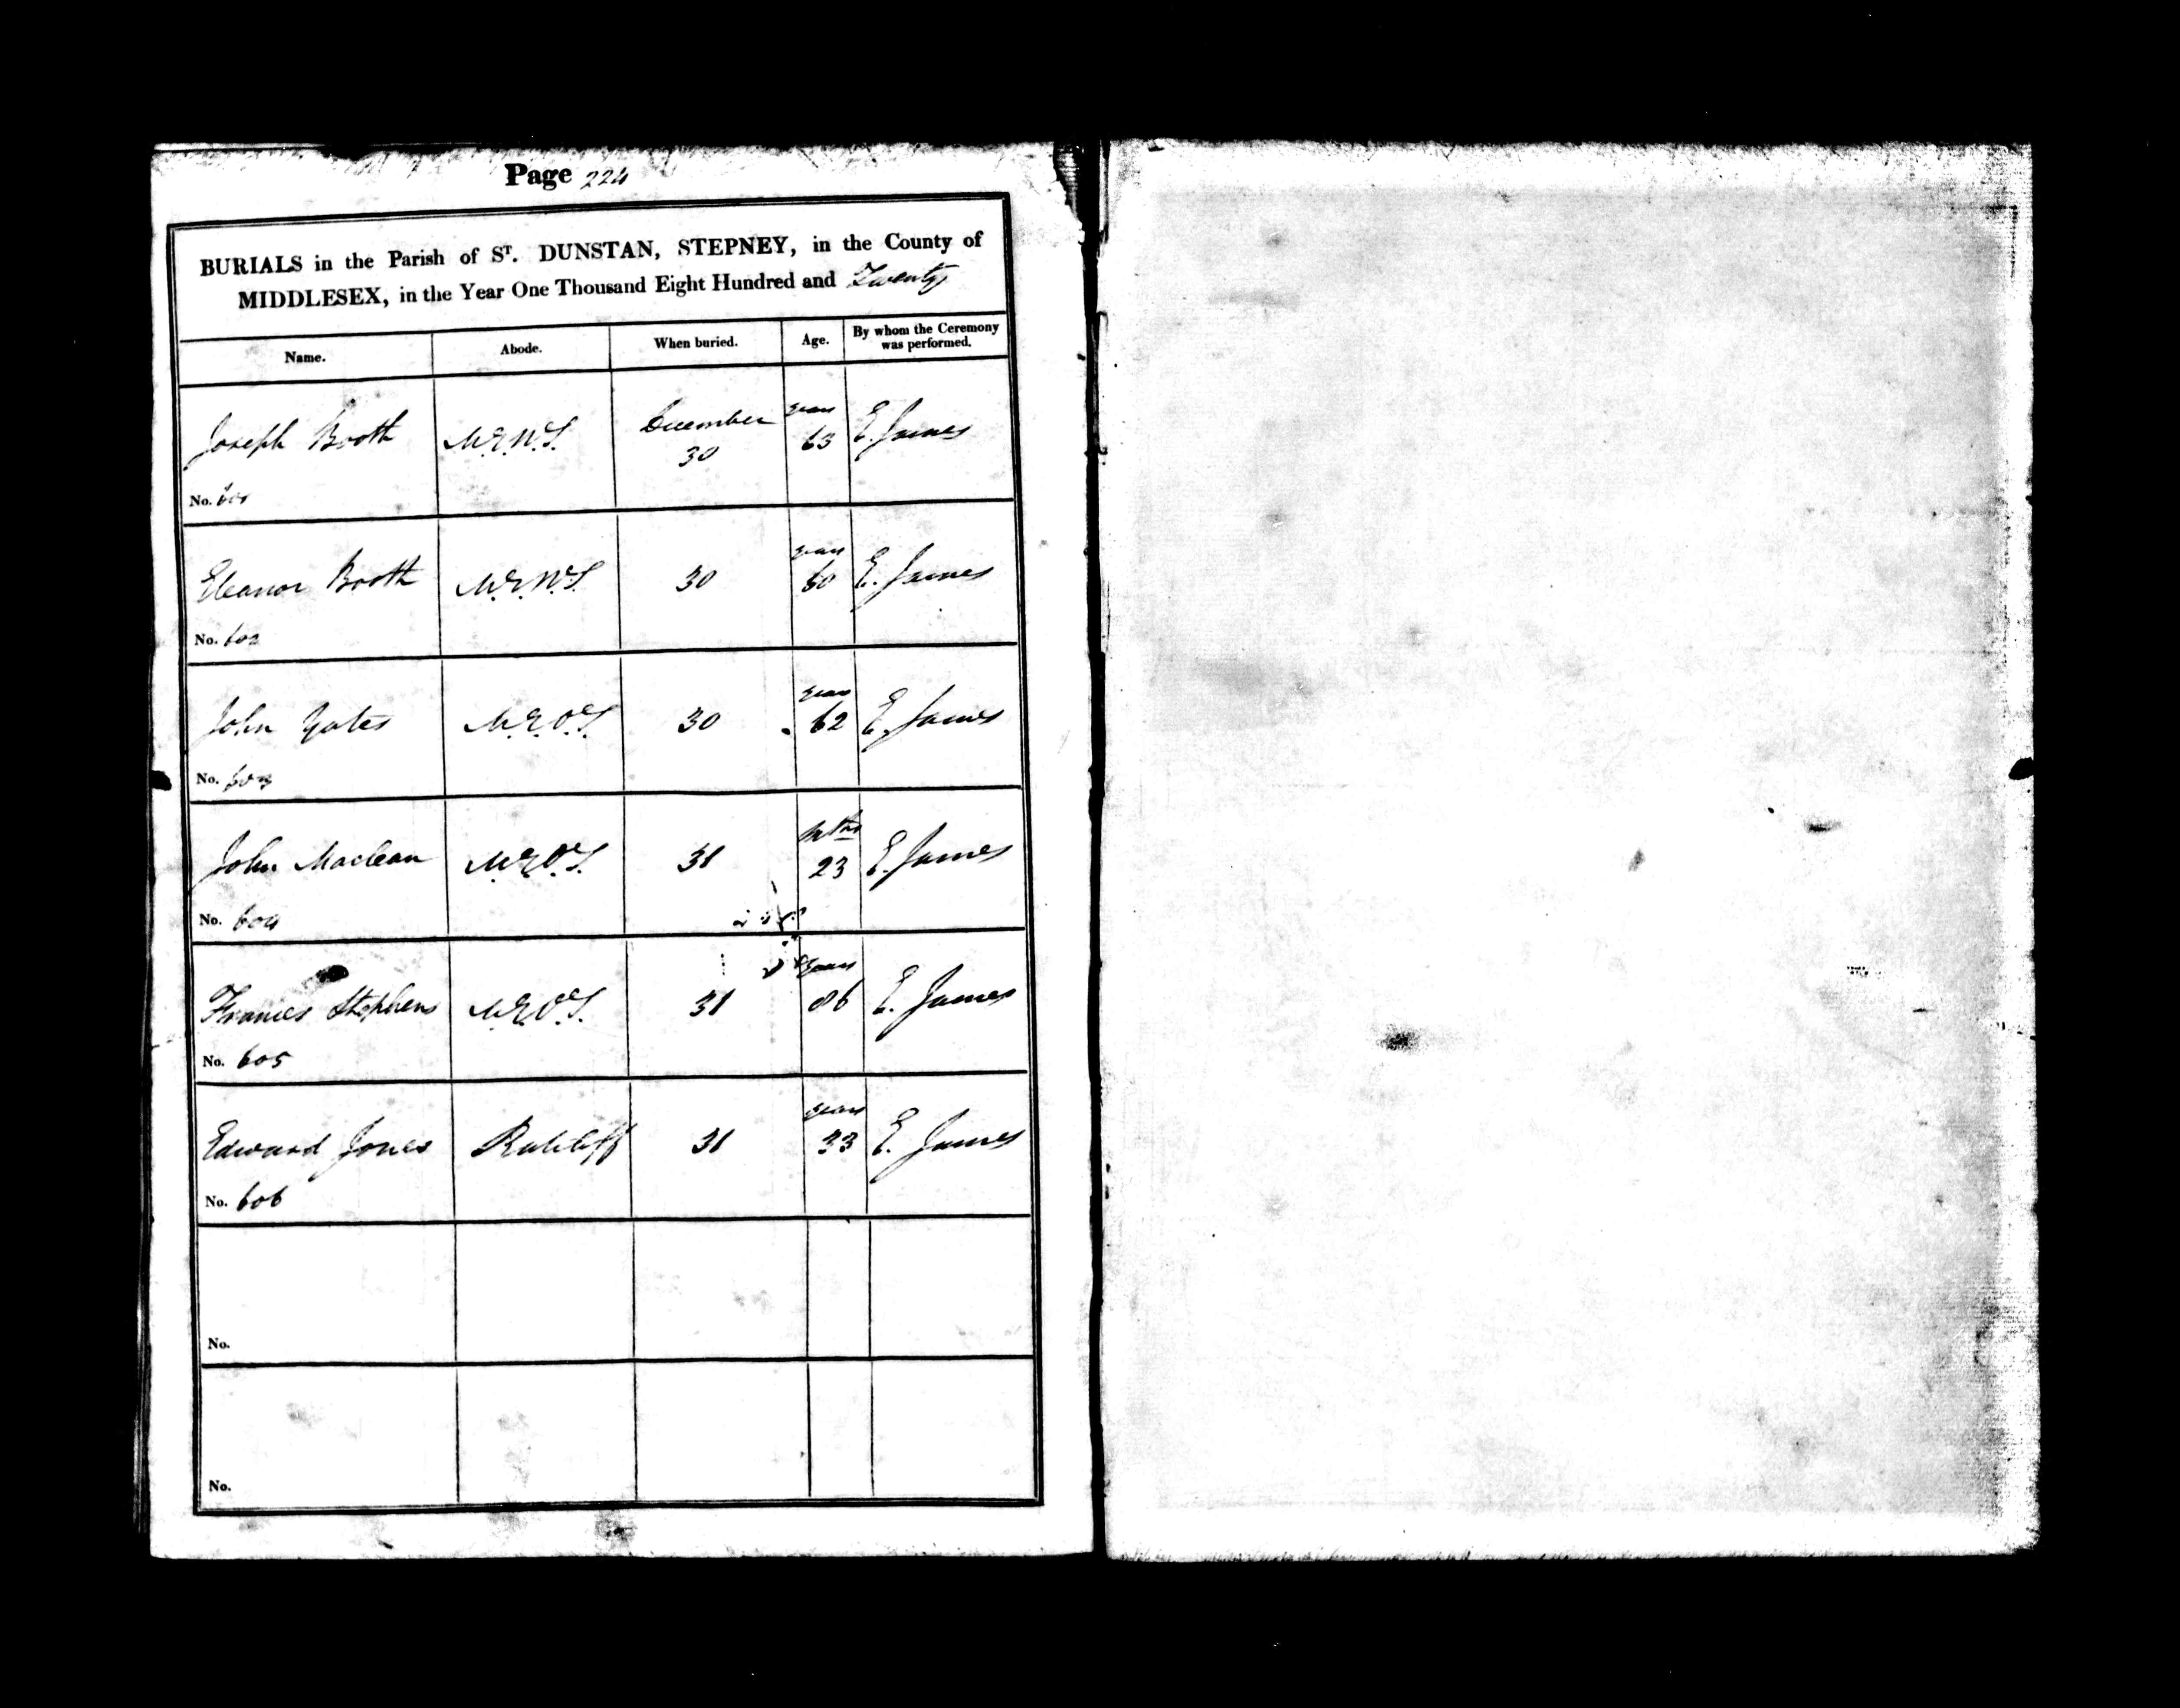 Page 224
BURIALS in the Parish of St. DUNSTAN, STEPNEY, in the County of
MIDDLESEX, in the Year One Thousand Eight Hundred and Twenty
Name. Abode. When buried. Age. By whom the Ceremony was performed.
Joseph Booth M.E.N.T. December 30 years 63 E. James
No. 601
Eleanor Booth M.E.N.T. 30 years 60 E. James
No. 602
John Yates M.E.O.T. 30 years 62 E. James
No. 603
John Maclean M.E.O.T. 31 mths 23 E. James
No. 604
Frances Stephens M.E.O.T. 31 years 86 E. James
No. 605
Edward Jones Ratcliff 31 years 33 E. James
No. 606
No.
No.